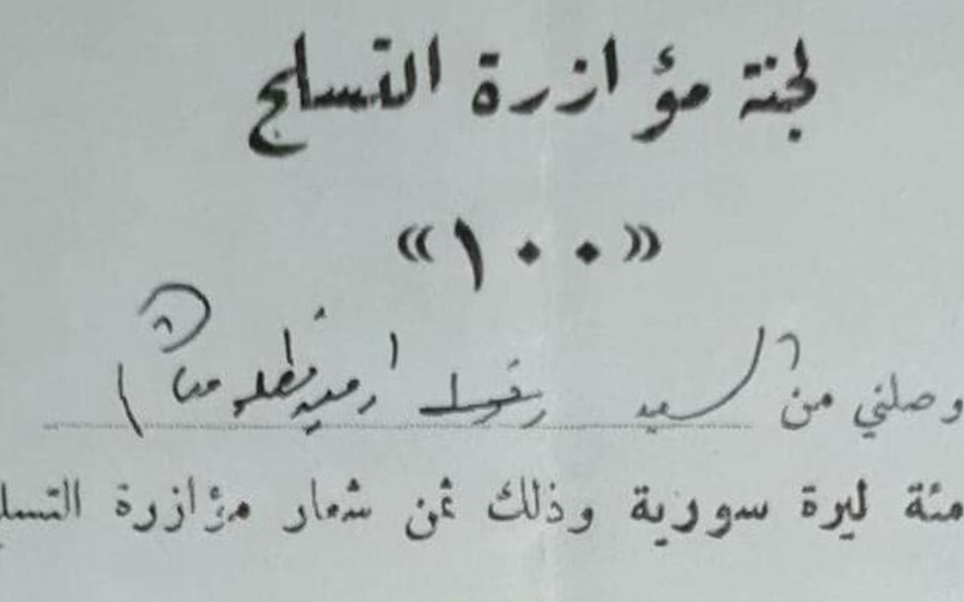 لجنة مؤازرة التسلح
«١٠٠»
وصلني من السيد
مئة ليرة سورية وذلك ثمن شعار مؤازرة التسل